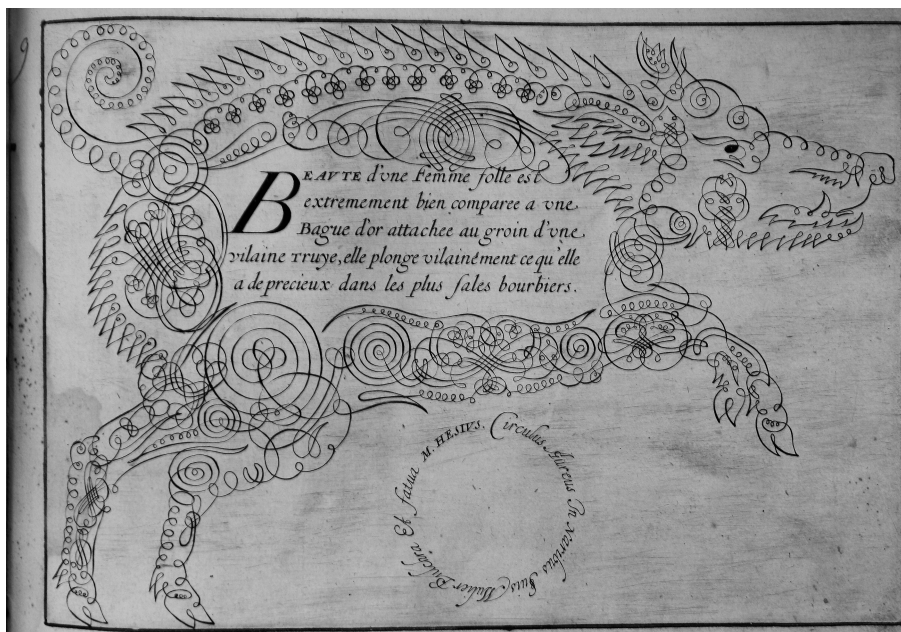 BEAVTE d'vne Femme folle est
extremement bien comparee a vne
Bague d'or attachee au groin d'vne
vilaine Truye, elle plonge vilainément ce qu'elle
a de precieux dans les plus sales bourbiers.
Circulus Aureus In naribus Suis Mulier Pulchra Et fatua M. HESIVS.